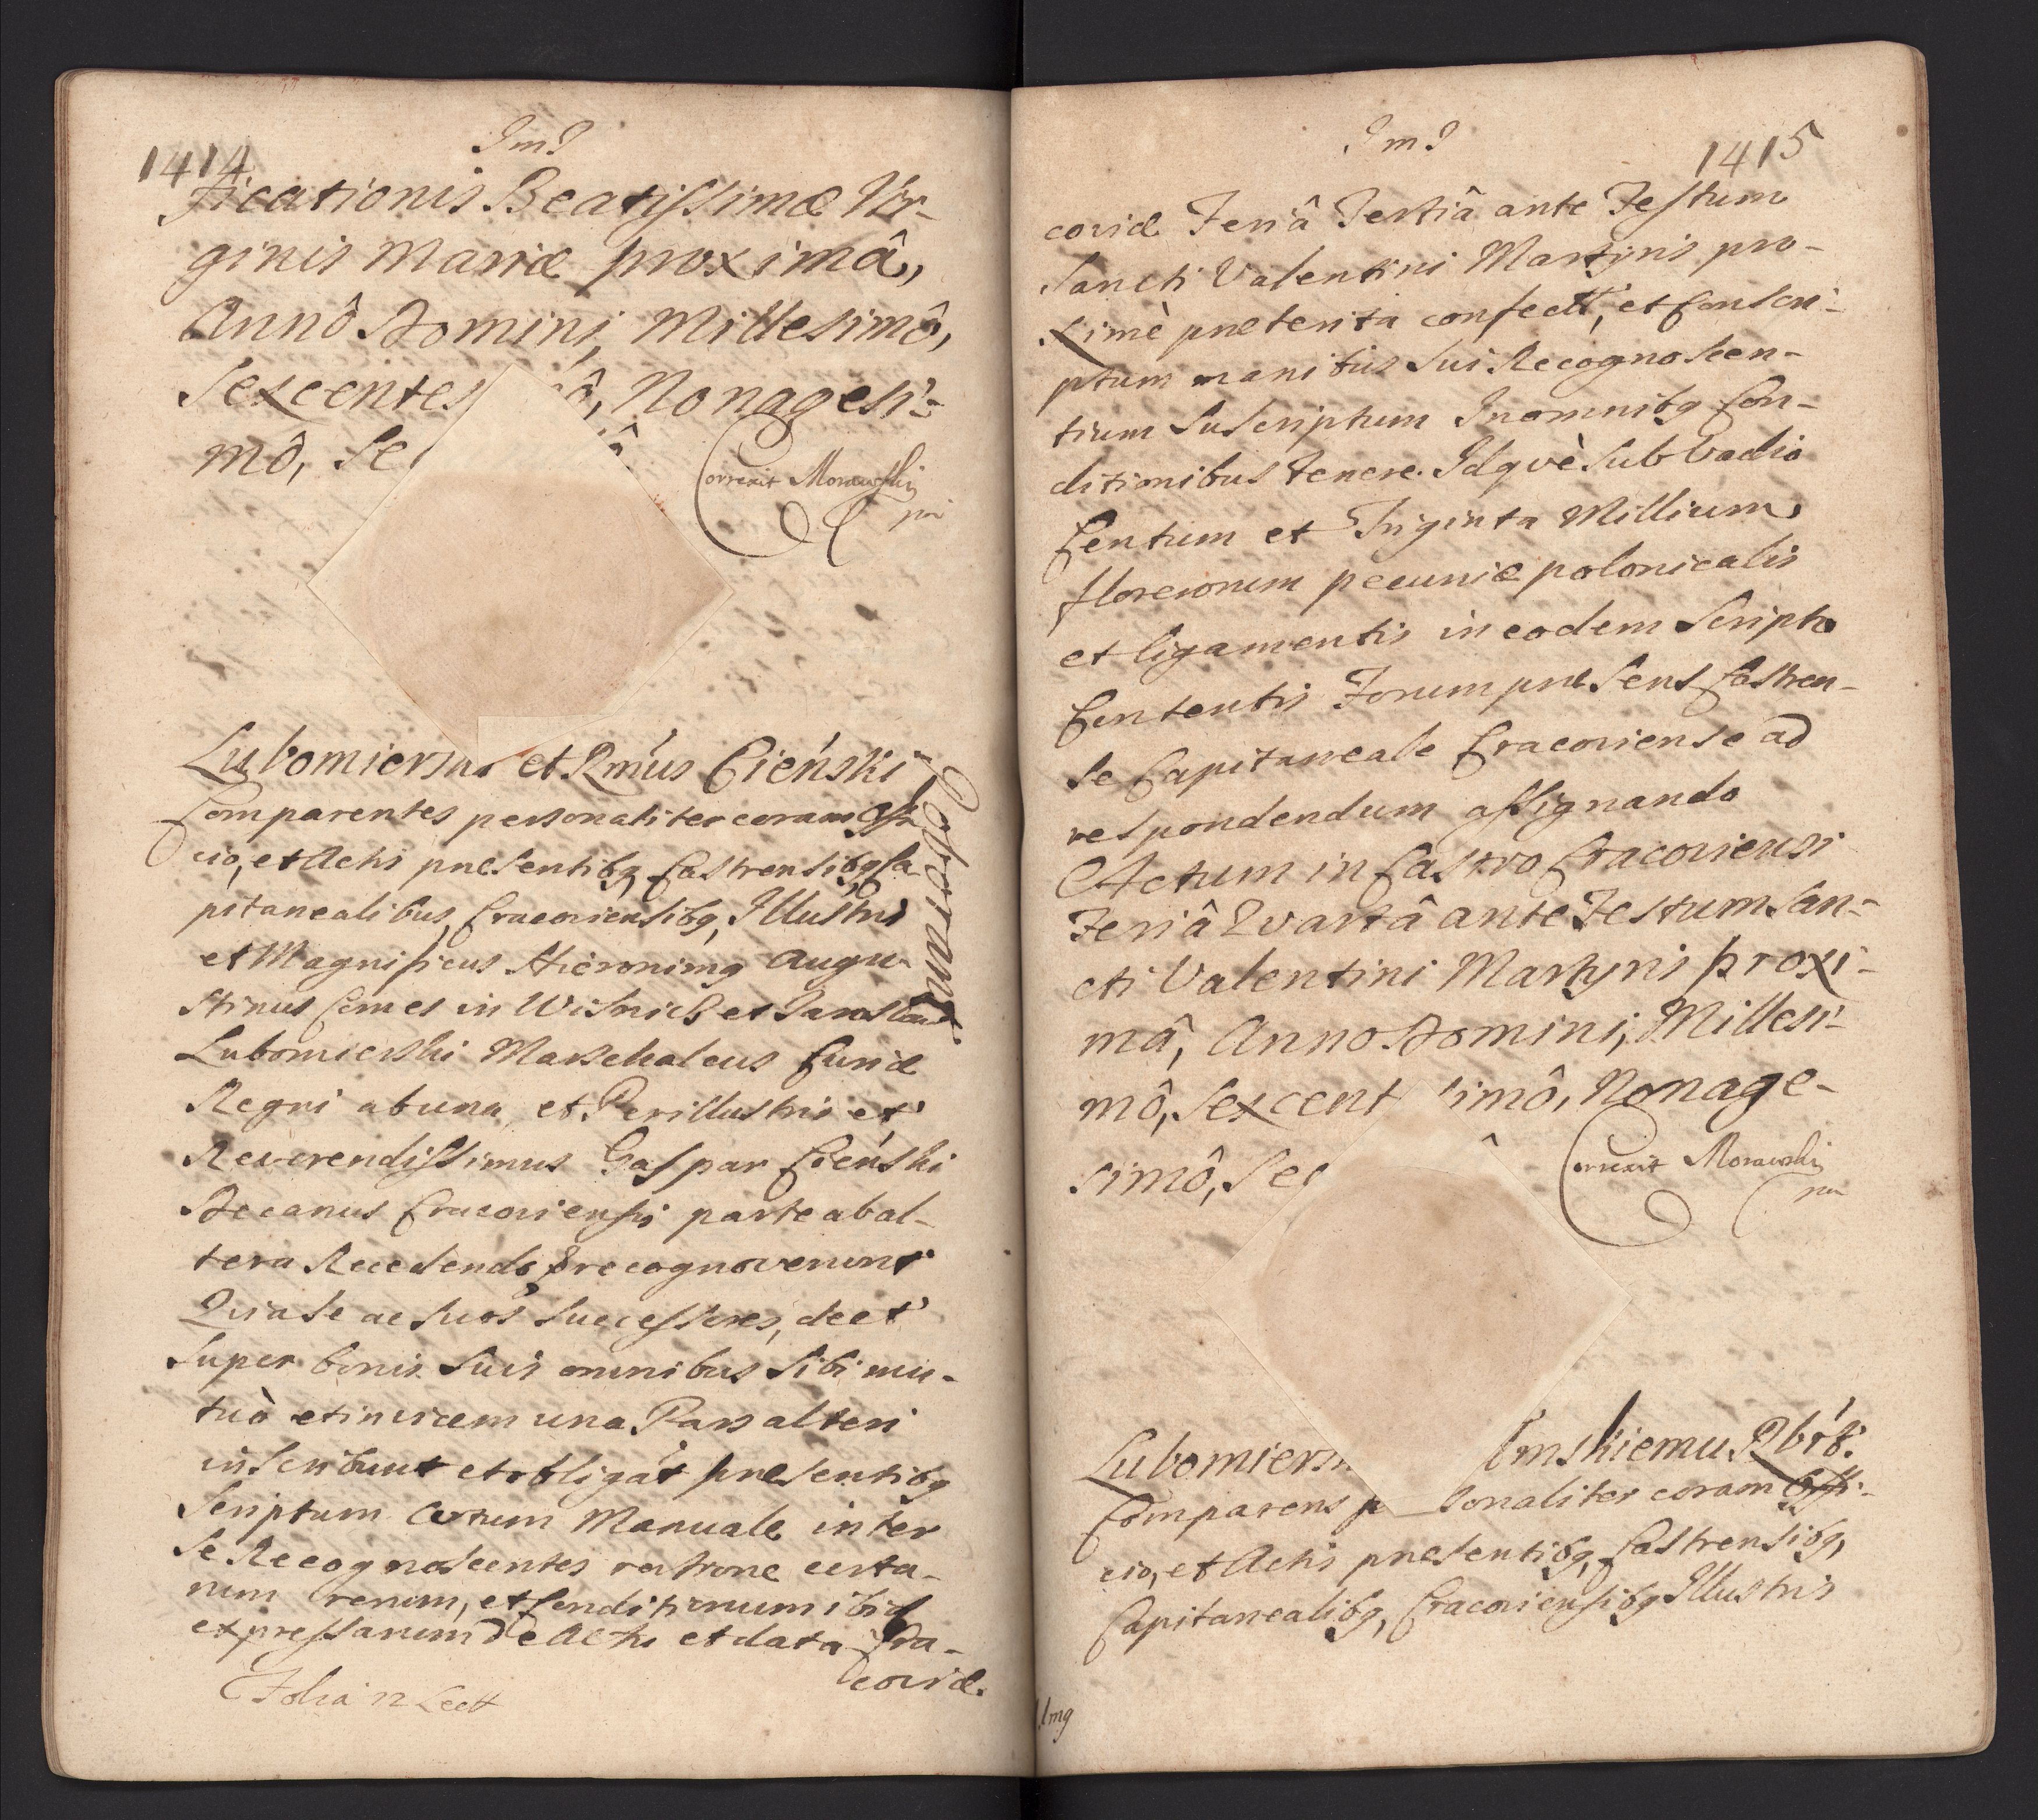 1414
ficationis Beatissimæ Vir-
ginis Mariæ proximâ,
Annô Domini, Millesimô,
Sexcentes ô, Nonagesi-
mô, Se
Correxit Morawski
Lubomiersk et Rmus Cieński
Comparentes personaliter coram Offi
cio, et Actis præsentibg Castrensibg Ca
pitanealibus, Cracoviensibg, Illustris
et Magnificus Hieronimg Augu-
stinus Comes in Wisnicz et Jaroslaw
Lubomierski Marschalcus Curiæ
Regni ab una, et Perillustris et
Reverendissimus Gaspar Cieński
Decanus Cracoviensis parte ab al-
tera Recedendo & recognoverunt
Quia Se ac Suos Successores, de et
Super bonis Suis omnibus Sibi mu-
tuò et invicem una Pars alteri
inscribunt et obligāt præsentibg
Scriptum Certum Manuale inter
Se Recognoscentes ratione certa-
rum rerum, et Conditionum ibid
expressarum De Actu et data Cra-
coviæ.
1415
coviæ Feriâ Tertiâ ante Festum
Sancti Valentini Martyris pro-
ximè præterita confectt, et Conscri-
ptum manibus Sui Recognoscen-
tium Suscriptum In omnibg Con-
ditionibus tenere. Idqvè Sub Vadio
Centum et Triginta Millium
florenorum pecuniæ polonicalis
et ligamentis in eodem Scripto
Contentis Forum præsens Castren-
se Capitaneale Cracoviense ad
respondendum assignando
Actum in Castro Cracoviensi
Feriâ Qvartâ ante Festum San-
cti Valentini Martyris proxi-
mâ, Anno Domini, Millesi-
mô, Sexcent simô, Nonage-
simô, Sec
Correxit Morawski
Lubomiers mskiemu
Comparens p sonaliter coram Offi-
cio, et Actis præsentibg, Castrensibg,
Capitanealibg, Cracoviensibg Illustris